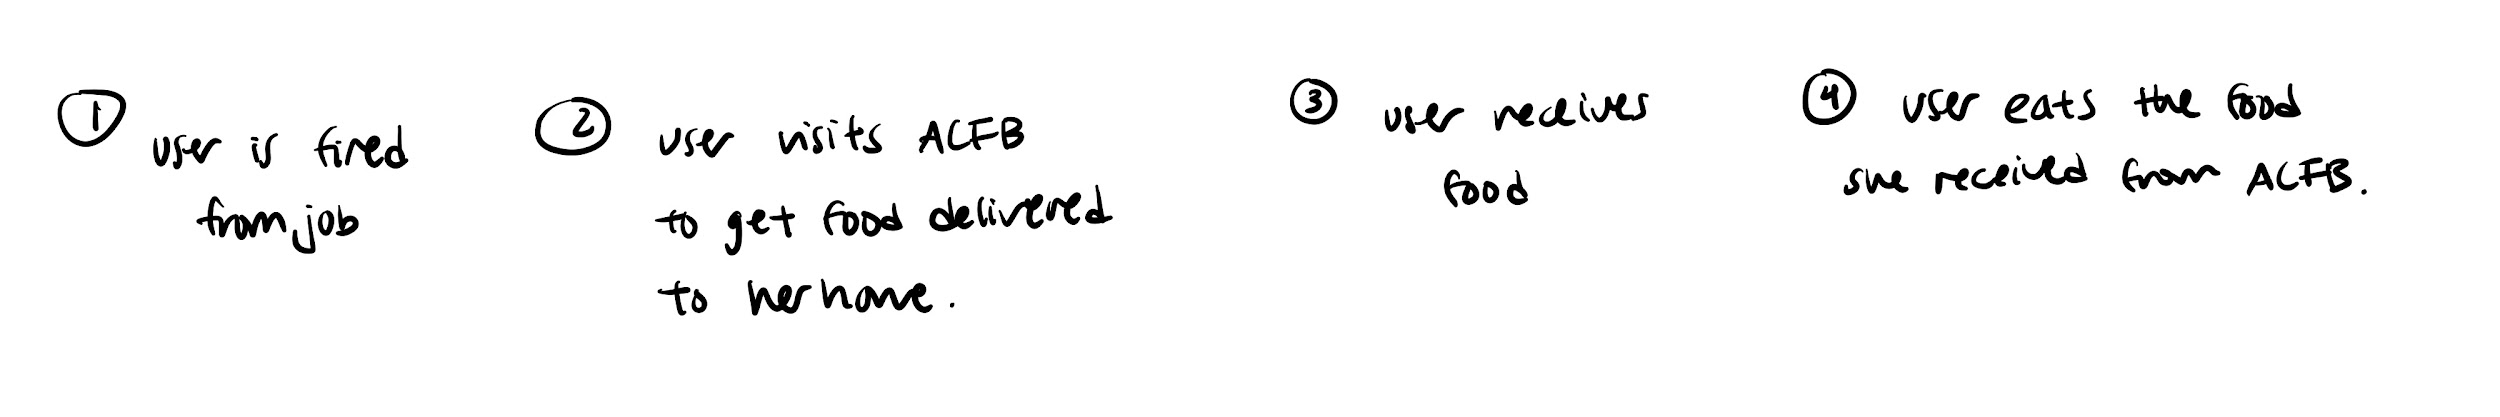 ① User is fired
from job
② user visits ACFB
to get food delivered
to her home.
③ user receives
food
④ user eats the food
she received from ACFB.